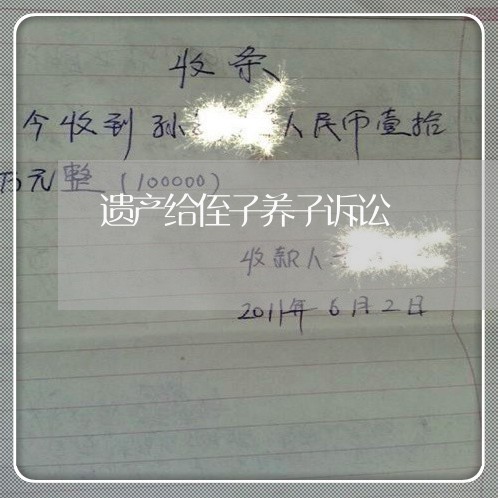 收条
今收到孙 人民币壹拾
万元整(100000)
遗产给侄子养子诉讼
收款人
2011年6月2日